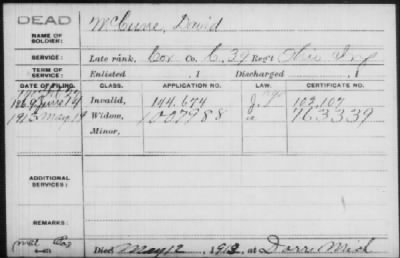 DEAD
NAME OF SOLDIER: McClure, David
SERVICE: Late rank, Cor Co. C, 39 Reg't Ohio Inf
TERM OF SERVICE: Enlisted , 1 Discharged , 1
DATE OF FILING. CLASS. APPLICATION NO. CERTIFICATE NO.
1869 June 14 Invalid, 144.674 102.107
1913 May 19 Widow, 1007988 763339
Minor,
ADDITIONAL SERVICES:
REMARKS:
Died May 12, 1913, at Dorr Mich